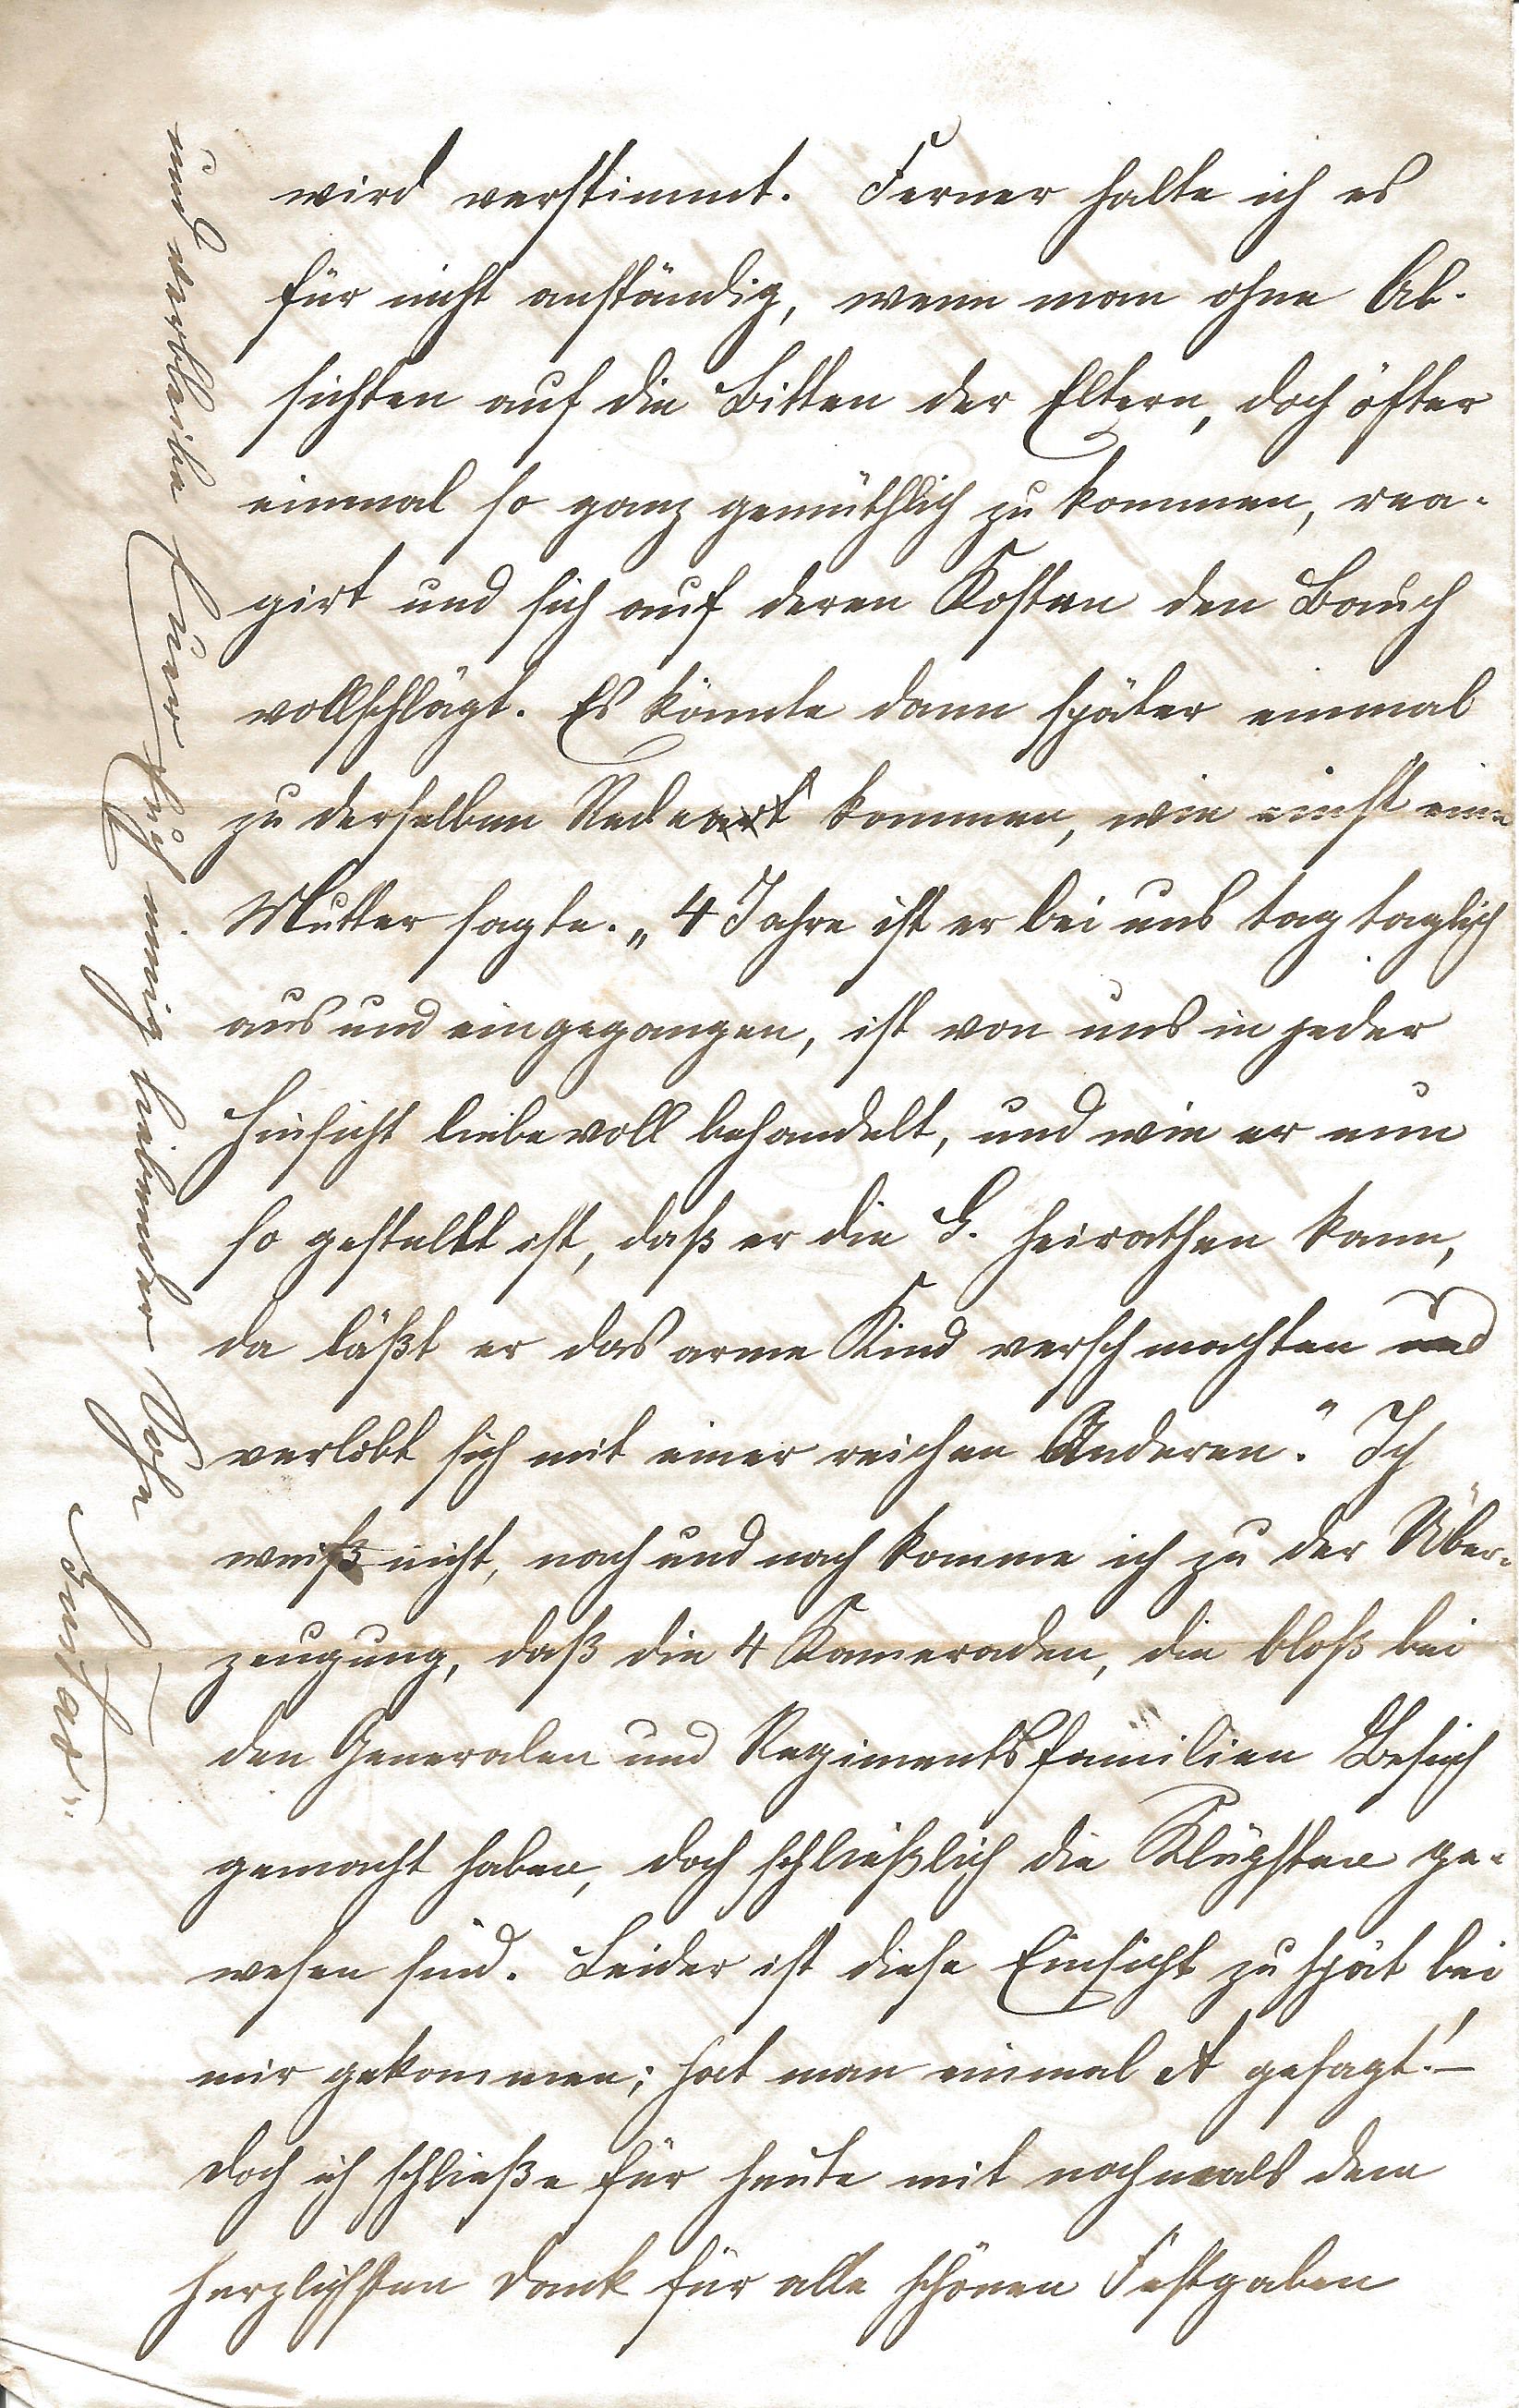 wird verstimmt. Ferner halte ich es
für nicht anständig, wenn man ohne Ab-
sichten auf die Bitten der Eltern, doch öfter
einmal so ganz gemüthlich zu kommen, rea-
girt und sich auf deren Kosten den Bauch
vollschlägt. Es könnte dann später einmal
zu derselben Redeart kommen, wie einst eine
Mutter sagte. „4 Jahre ist er bei uns tag taglich
aus und eingegangen, ist von uns in jeder
Hinsicht liebevoll behandelt, und wie er nun
so gestellt ist, daß er die G. heirathen kann,
da läßt er das arme Kind verschmachten und
verlobt sich mit einer reichen Anderen." Ich
weiß nicht, nach und nach komme ich zu der Über-
zeugung, daß die 4 Kameraden, die bloß bei
den Generalen und Regimentsfamilien Besuch
gemacht haben, doch schließlich die Klügsten ge-
wesen sind. Leider ist diese Einsicht zu spät bei
mir gekommen; hat man einmal A gesagt! –
Doch ich schließe für heute mit nochmals dem
herzlichsten Dank für alle schönen Festgaben
und verbleibe Euer Euch innig liebender Sohn
Gustav.